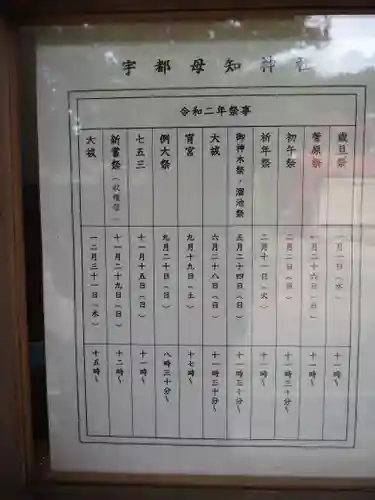 宇都母知神社
令和二年祭事
歳旦祭 一月一日(水) 十一時~
菅原祭 一月二十六日(日) 十一時~
初午祭 二月二日(日) 十一時三十分~
祈年祭 二月十一日(火) 十一時~
御神木祭・溜池祭 五月二十四日(日) 十一時三十分~
大祓 六月二十八日(日) 十一時三十分~
宵宮 九月十九日(土) 十七時~
例大祭 九月二十日(日) 八時三十分~
七五三 十一月十五日(日) 十一時~
新嘗祭(収穫祭) 十一月二十九日(日) 十二時~
大祓 一二月三十一日(木) 十五時~